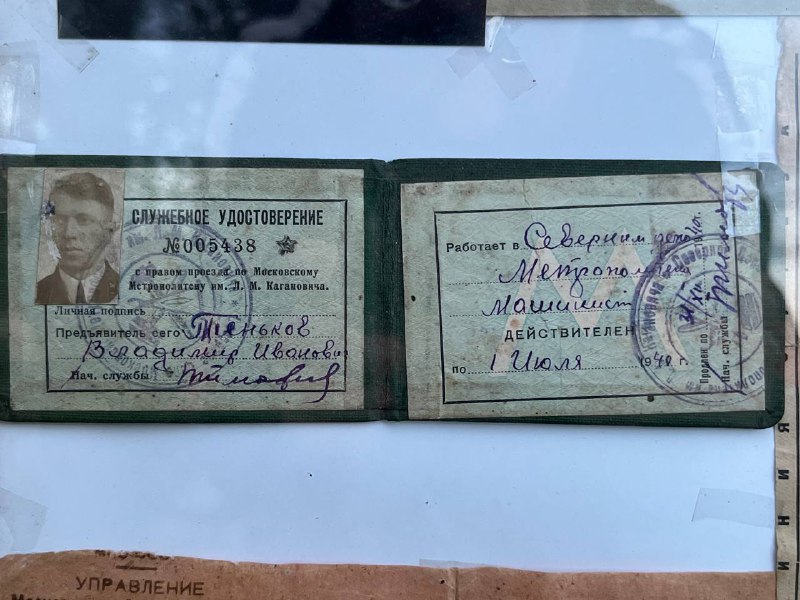 СЛУЖЕБНОЕ УДОСТОВЕРЕНИЕ
№005438
с правом проезда по Московскому
Метрополитену им. Л. М. Кагановича.
Личная подпись
Предъявитель сего Теньков
Владимир Иванович
Нач. службы
Работает в Северним депо
Метрополитена
Машинист
ДЕЙСТВИТЕЛЕН
по 1 Июля 1940 г.
Продлен по 31/XII
Нач. службы
УПРАВЛЕНИЕ